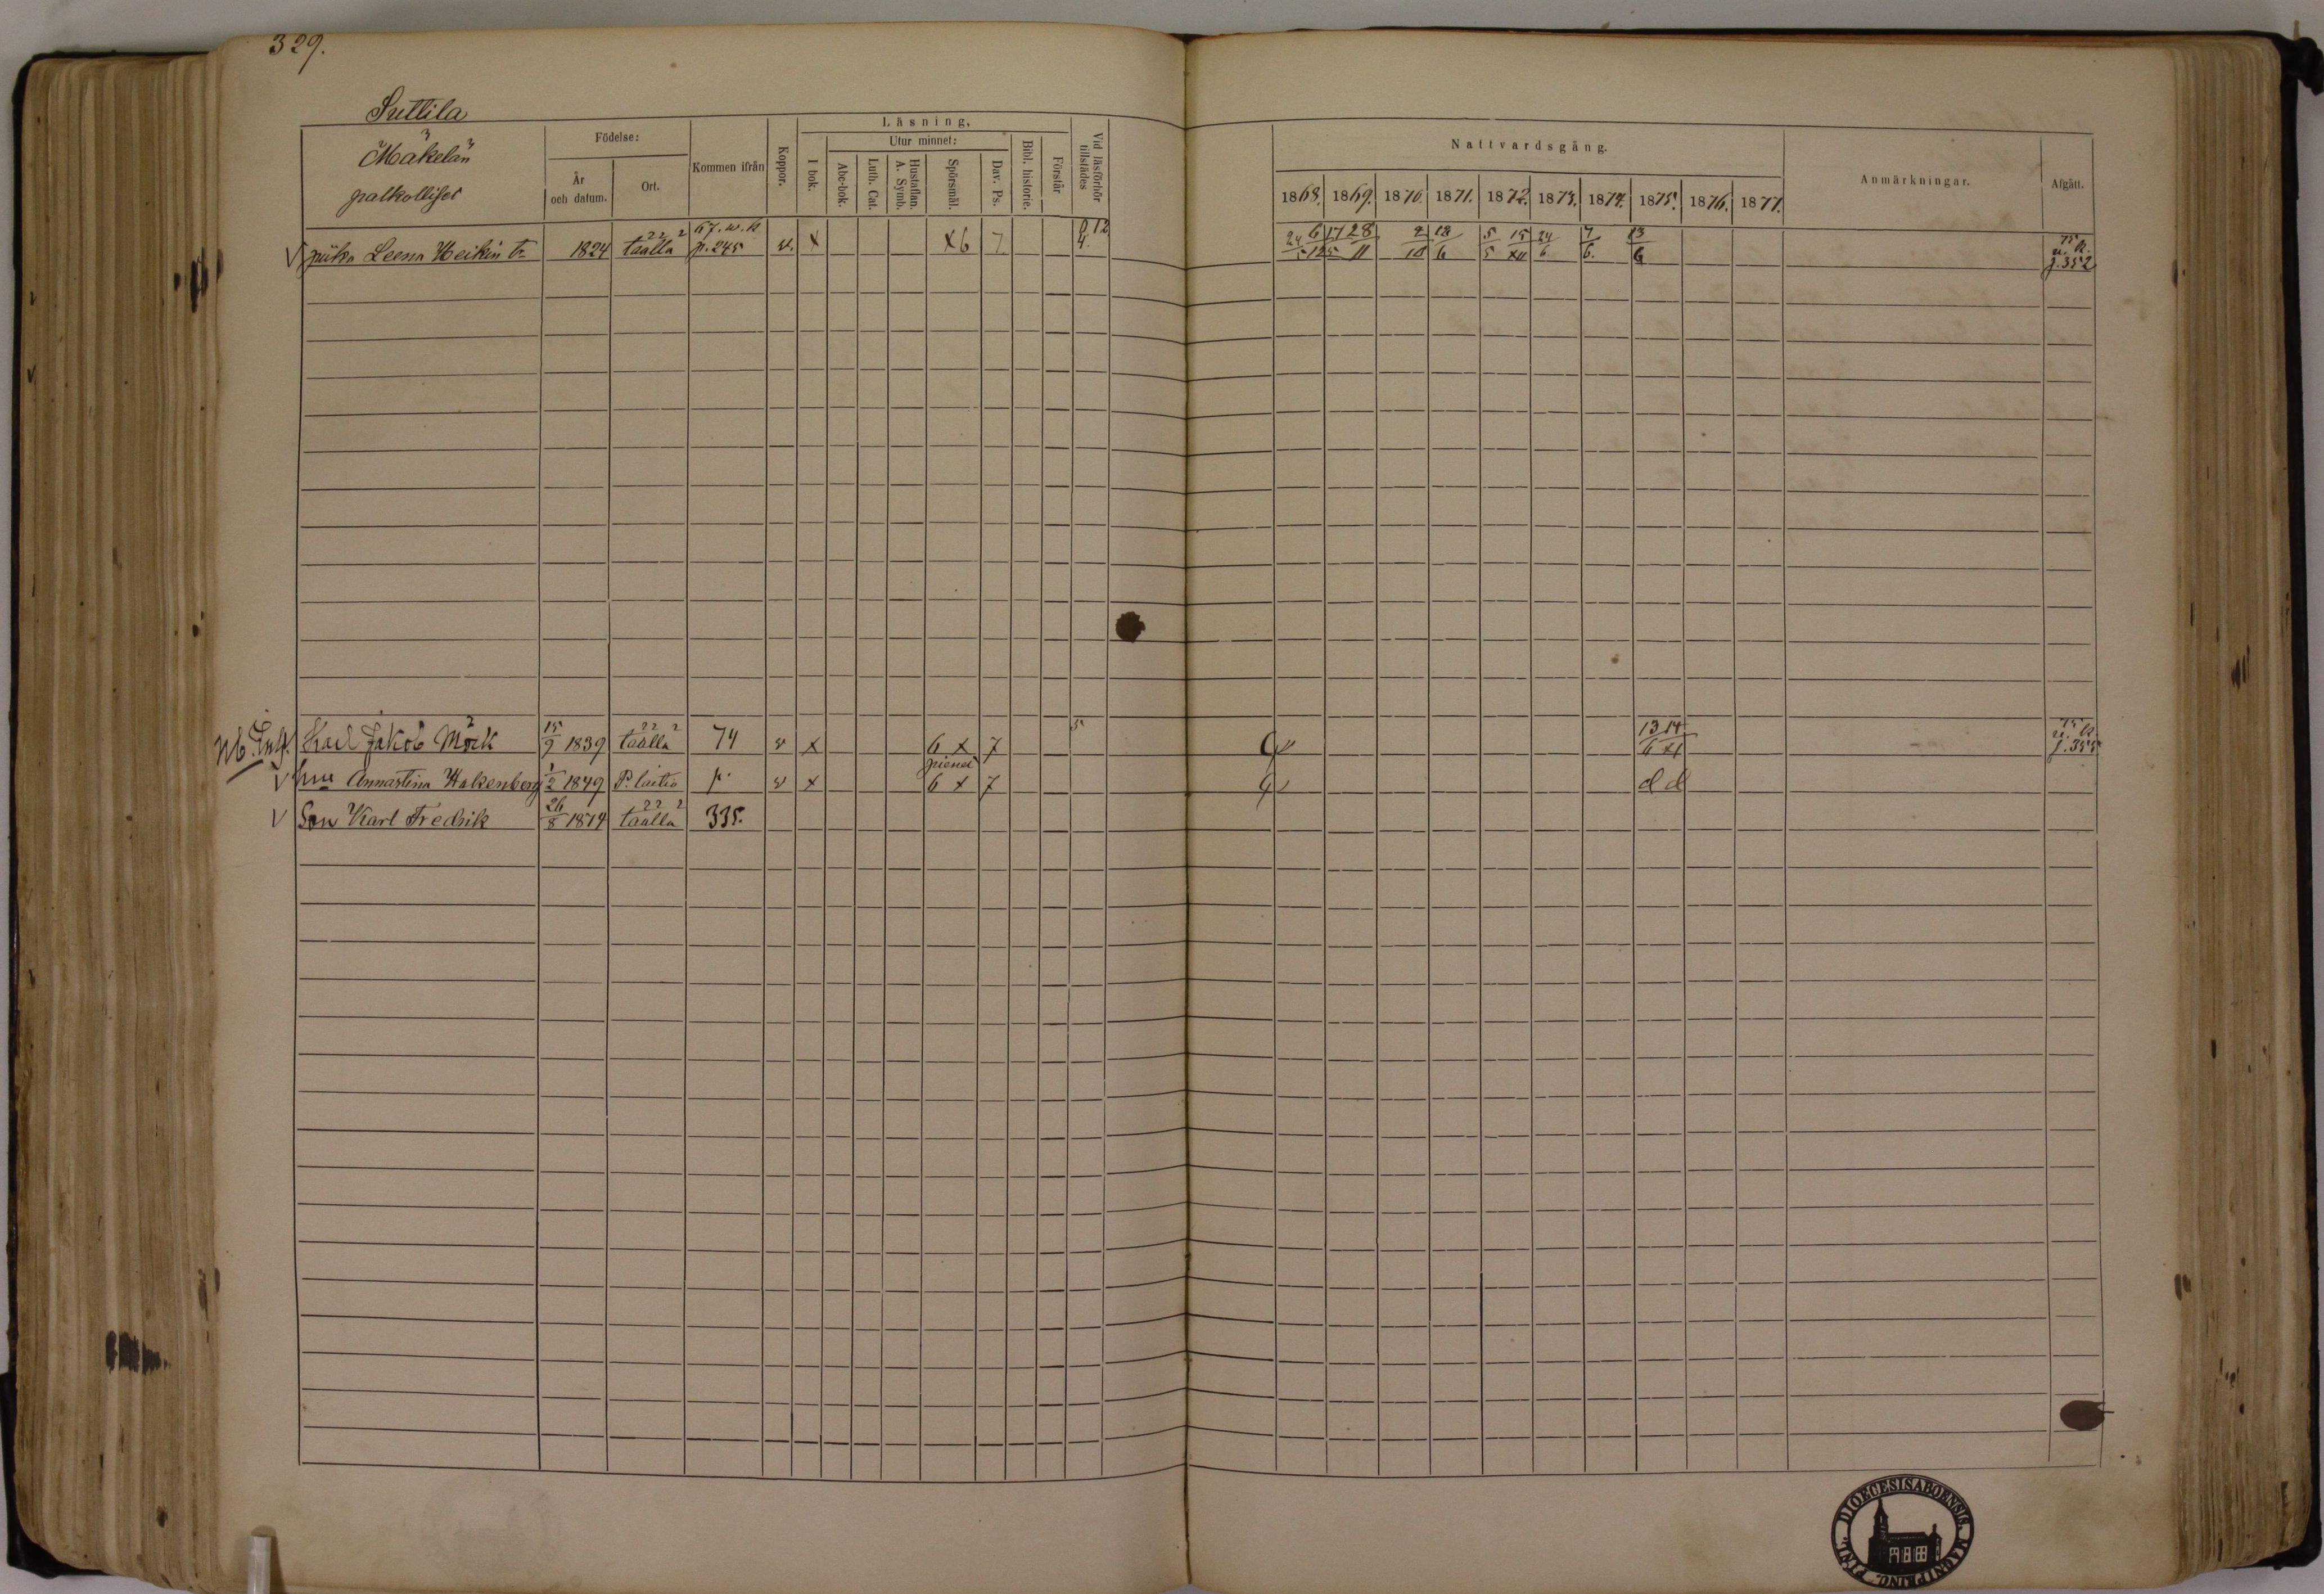 329.
Suttila
Mäkelän
palkolliset
Födelse:
År och datum.
Ort.
Kommen ifrån
Koppor.
Läsning,
I bok.
Utur minnet:
Abc-bok.
Luth. Cat.
Hustaflan. A. Symb.
Spörsmål.
Dav. Ps.
Bibl. historie.
Förstår
Vid läsförhör tillstädes
Nattvardsgång.
1868. 1869. 1870. 1871. 1872. 1873. 1874. 1875. 1876. 1877.
Anmärkningar.
Afgått.
piika Leena Heikin tr 1824 täällä 67. w. k. p. 245 v. x x6 7 24/5 6/12 17/5 28/11 2/10 18/6 5/5 15/XII 24/6 7/6. 13/6 75 k. u. p. 352
Karl Jakob Mörk 15/9 1839 täällä 74 v x 6 x 7 5 13/6 14/XI u. k. p. 355
pienet
Annastina Halkenberg 1/2 1849 P. laitio p. v x 6 x 7 d d
Son Karl Fredrik 26/8 1874 täällä 335.
FINL. DIOECESIS ABOENSIS. MAGNI PRINC.